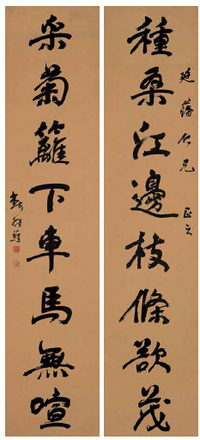 種桑江邊枝條欲茂
仁兄 正之
采菊籬下車馬無喧